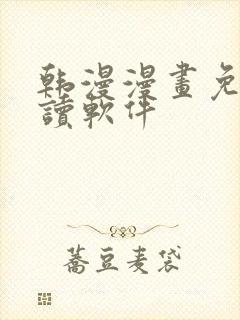 韩漫漫畫免
讀軟件
蕎豆麦袋